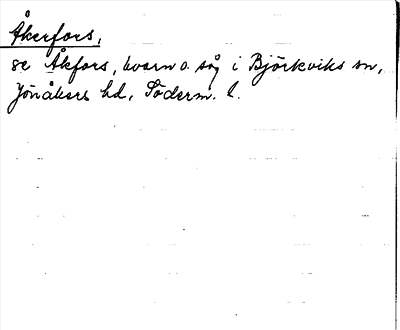 Åkerfors,
se Åkfors, kvarn o. såg i Björkviks sn,
Jönåkers hd, Söderm. l.